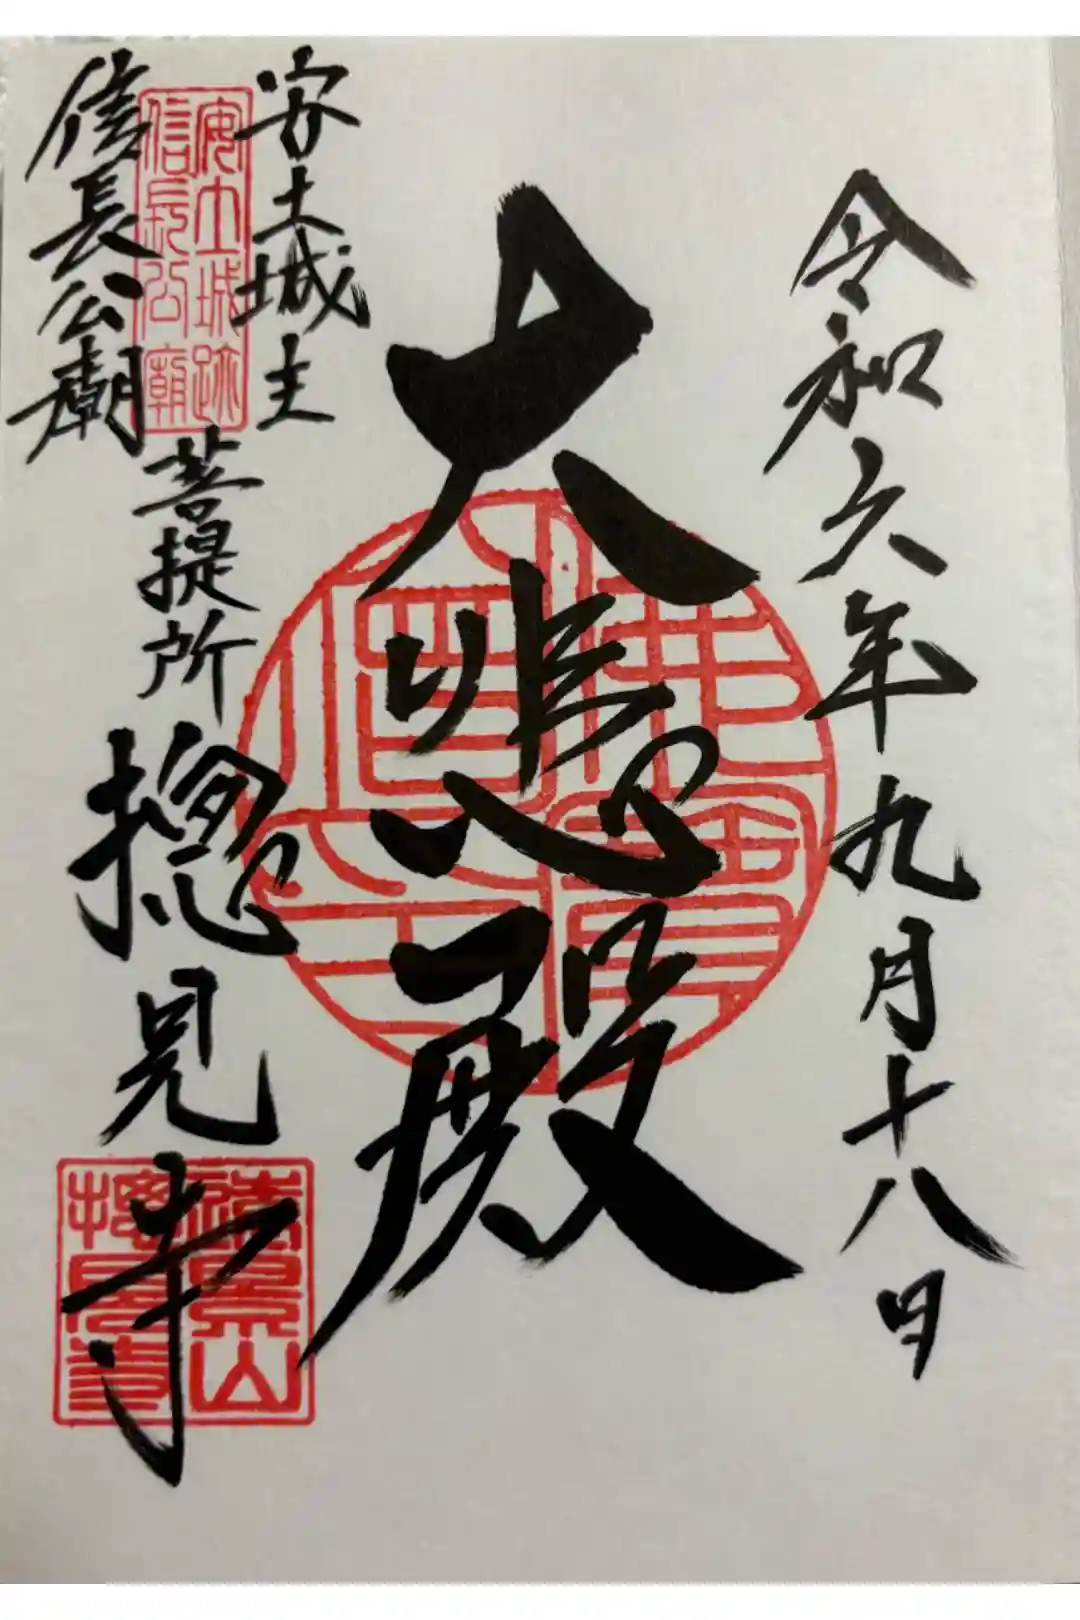 令和六年九月十八日
大悲殿
安土城主
信長公廟
菩提所
摠見寺
安土城跡
信長公廟
遠景山
摠見寺
佛法僧寳